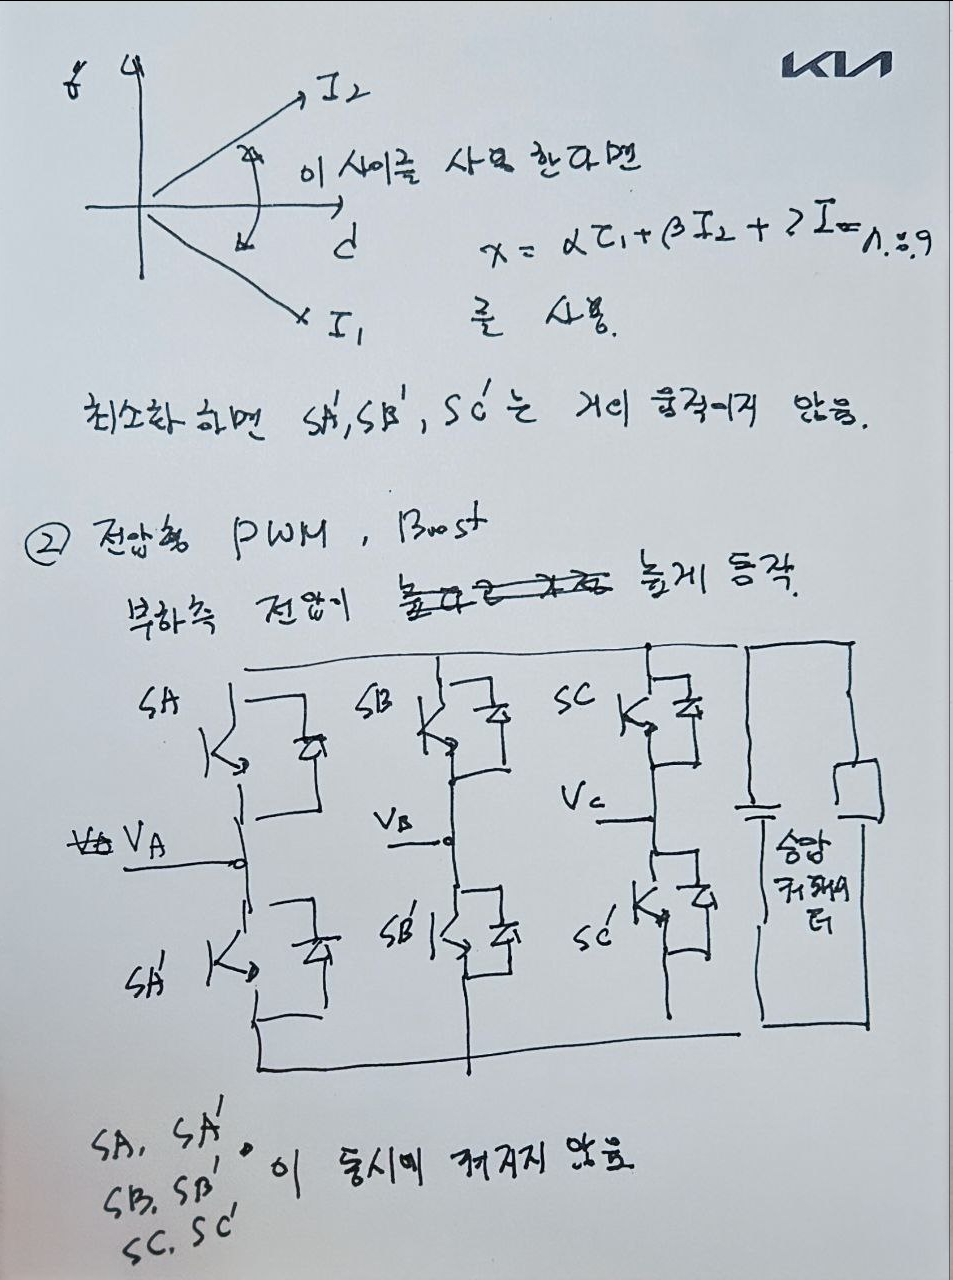 KIA
q
I2
이 사이를 사용 한다면
d
x = αI1 + βI2 + ? I
I1
를 사용.
최소화 하면 SA', SB', SC'는 거의 움직이지 않음.
② 전압형 PWM, Boost
부하측 전압이 높다고 가정 높게 동작.
SA SB SC
VA VB VC
승압
SA' SB' SC'
SA, SA'
SB, SB' 이 동시에 켜지지 않음
SC, SC'